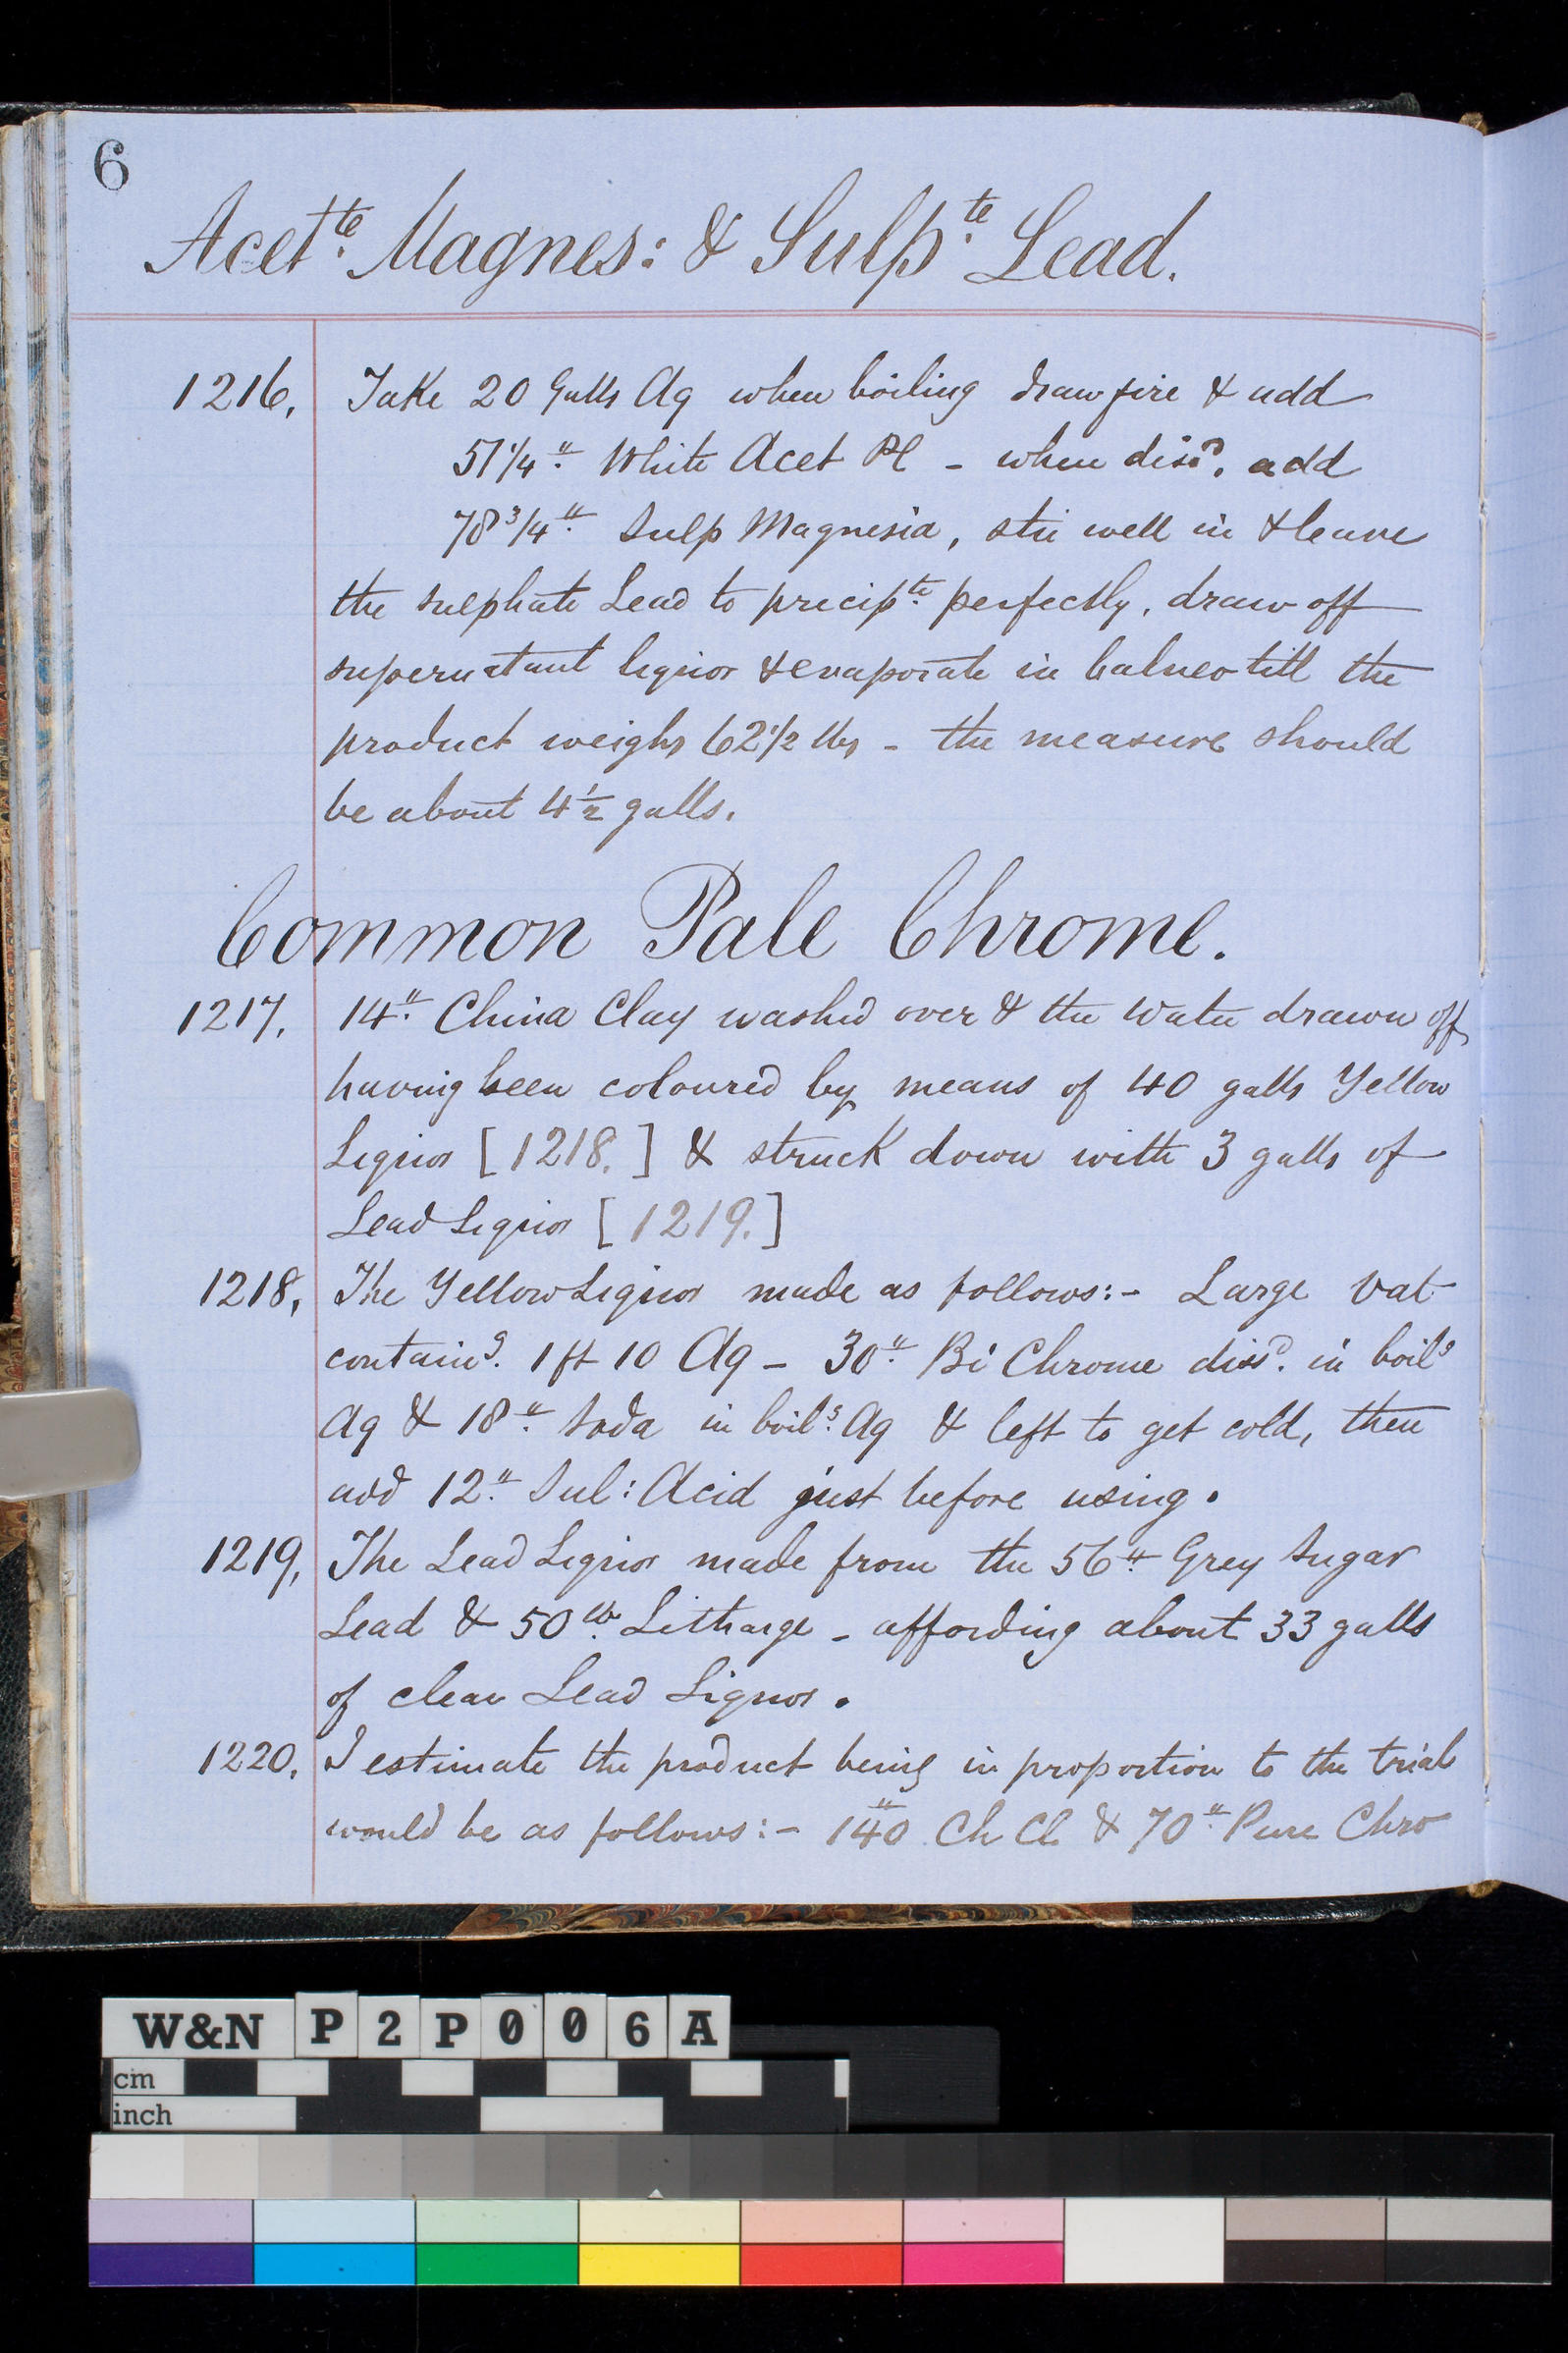 6
Acet.te Magnes: & Sulp.te Lead.
1216, Take 20 Galls Aq when boiling draw fire & add
51 1/4 " White Acet Pl - when diss.d add
78 3/4 " Sulp Magnesia, stir well in & leave
the sulphate Lead to precip.te perfectly, draw off
supernatant liquor & evaporate in balneo till the
product weighs 62 1/2 lbs - the measure should
be about 4 1/2 galls.
Common Pale Chrome.
1217, 14 " China Clay washed over & the Water drawn off
having been coloured by means of 40 galls Yellow
Liquor [1218.] & struck down with 3 galls of
Lead Liquor [1219.]
1218, The Yellow Liquor made as follows:- Large Vat
contain.g 1 ft 10 Aq - 30 " Bi Chrome diss.d in boil.g
Aq & 18 " Soda in boil.g Aq & left to get cold, then
add 12 " Sul: Acid just before using.
1219, The Lead Liquor made from the 56 " Grey Sugar
Lead & 50 lb Litharge - affording about 33 galls
of clear Lead Liquor.
1220, I estimate the product being in proportion to the trial
would be as follows:- 140 " Ch Cl & 70 " Pure Chro
W&N P2P006A
cm
inch